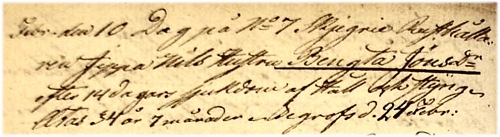 Febr. den 10. Dag på No 7 Skjegrie Ryttaren
Jeppa Nils Hustru Bengta Jönsdr
efter 14 dagars sjukdom af Håll och Styng
Ætas 34 år 7 månader Begrofs d. 24 Febr: